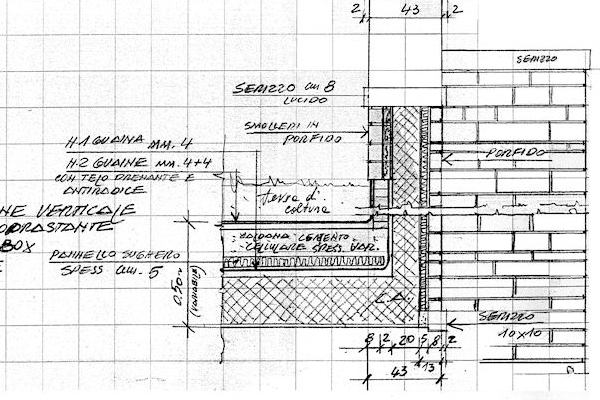 2 43 2
SERIZZO
SERIZZO cm 8
LUCIDO
SMOLLERI IN
PORFIDO
PORFIDO
N.1 GUAINA MM. 4
N.2 GUAINE MM. 4+4
CON TELO DRENANTE E
ANTIRADICE
terra di
coltura
NE VERTICALE
OPRASTANTE
BOX
E
CALDANA CEMENTO
CELLULARE SPESS. VAR.
PANNELLO SUGHERO
SPESS cm. 5
0.50
(VARIABILE)
C.A.
SERIZZO
10x10
8 2 20 5 8 2
13
43